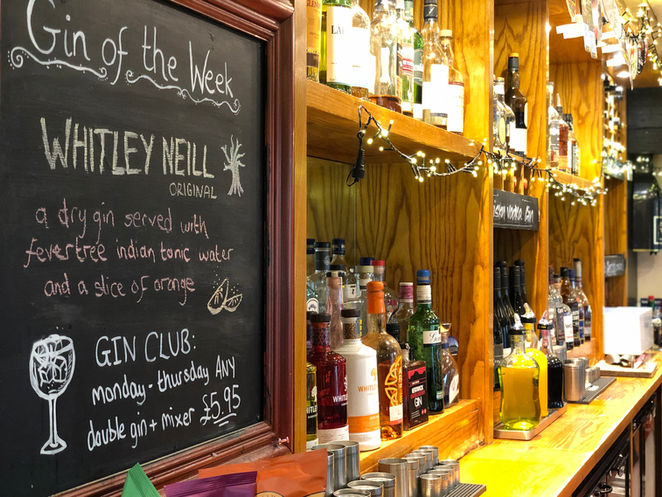 Gin of the Week
WHITLEY NEILL
ORIGINAL
a dry gin served with
fevertree indian tonic water
and a slice of orange
GIN CLUB:
monday - thursday ANY
double gin + mixer £5.95
WHITLEY
GIN